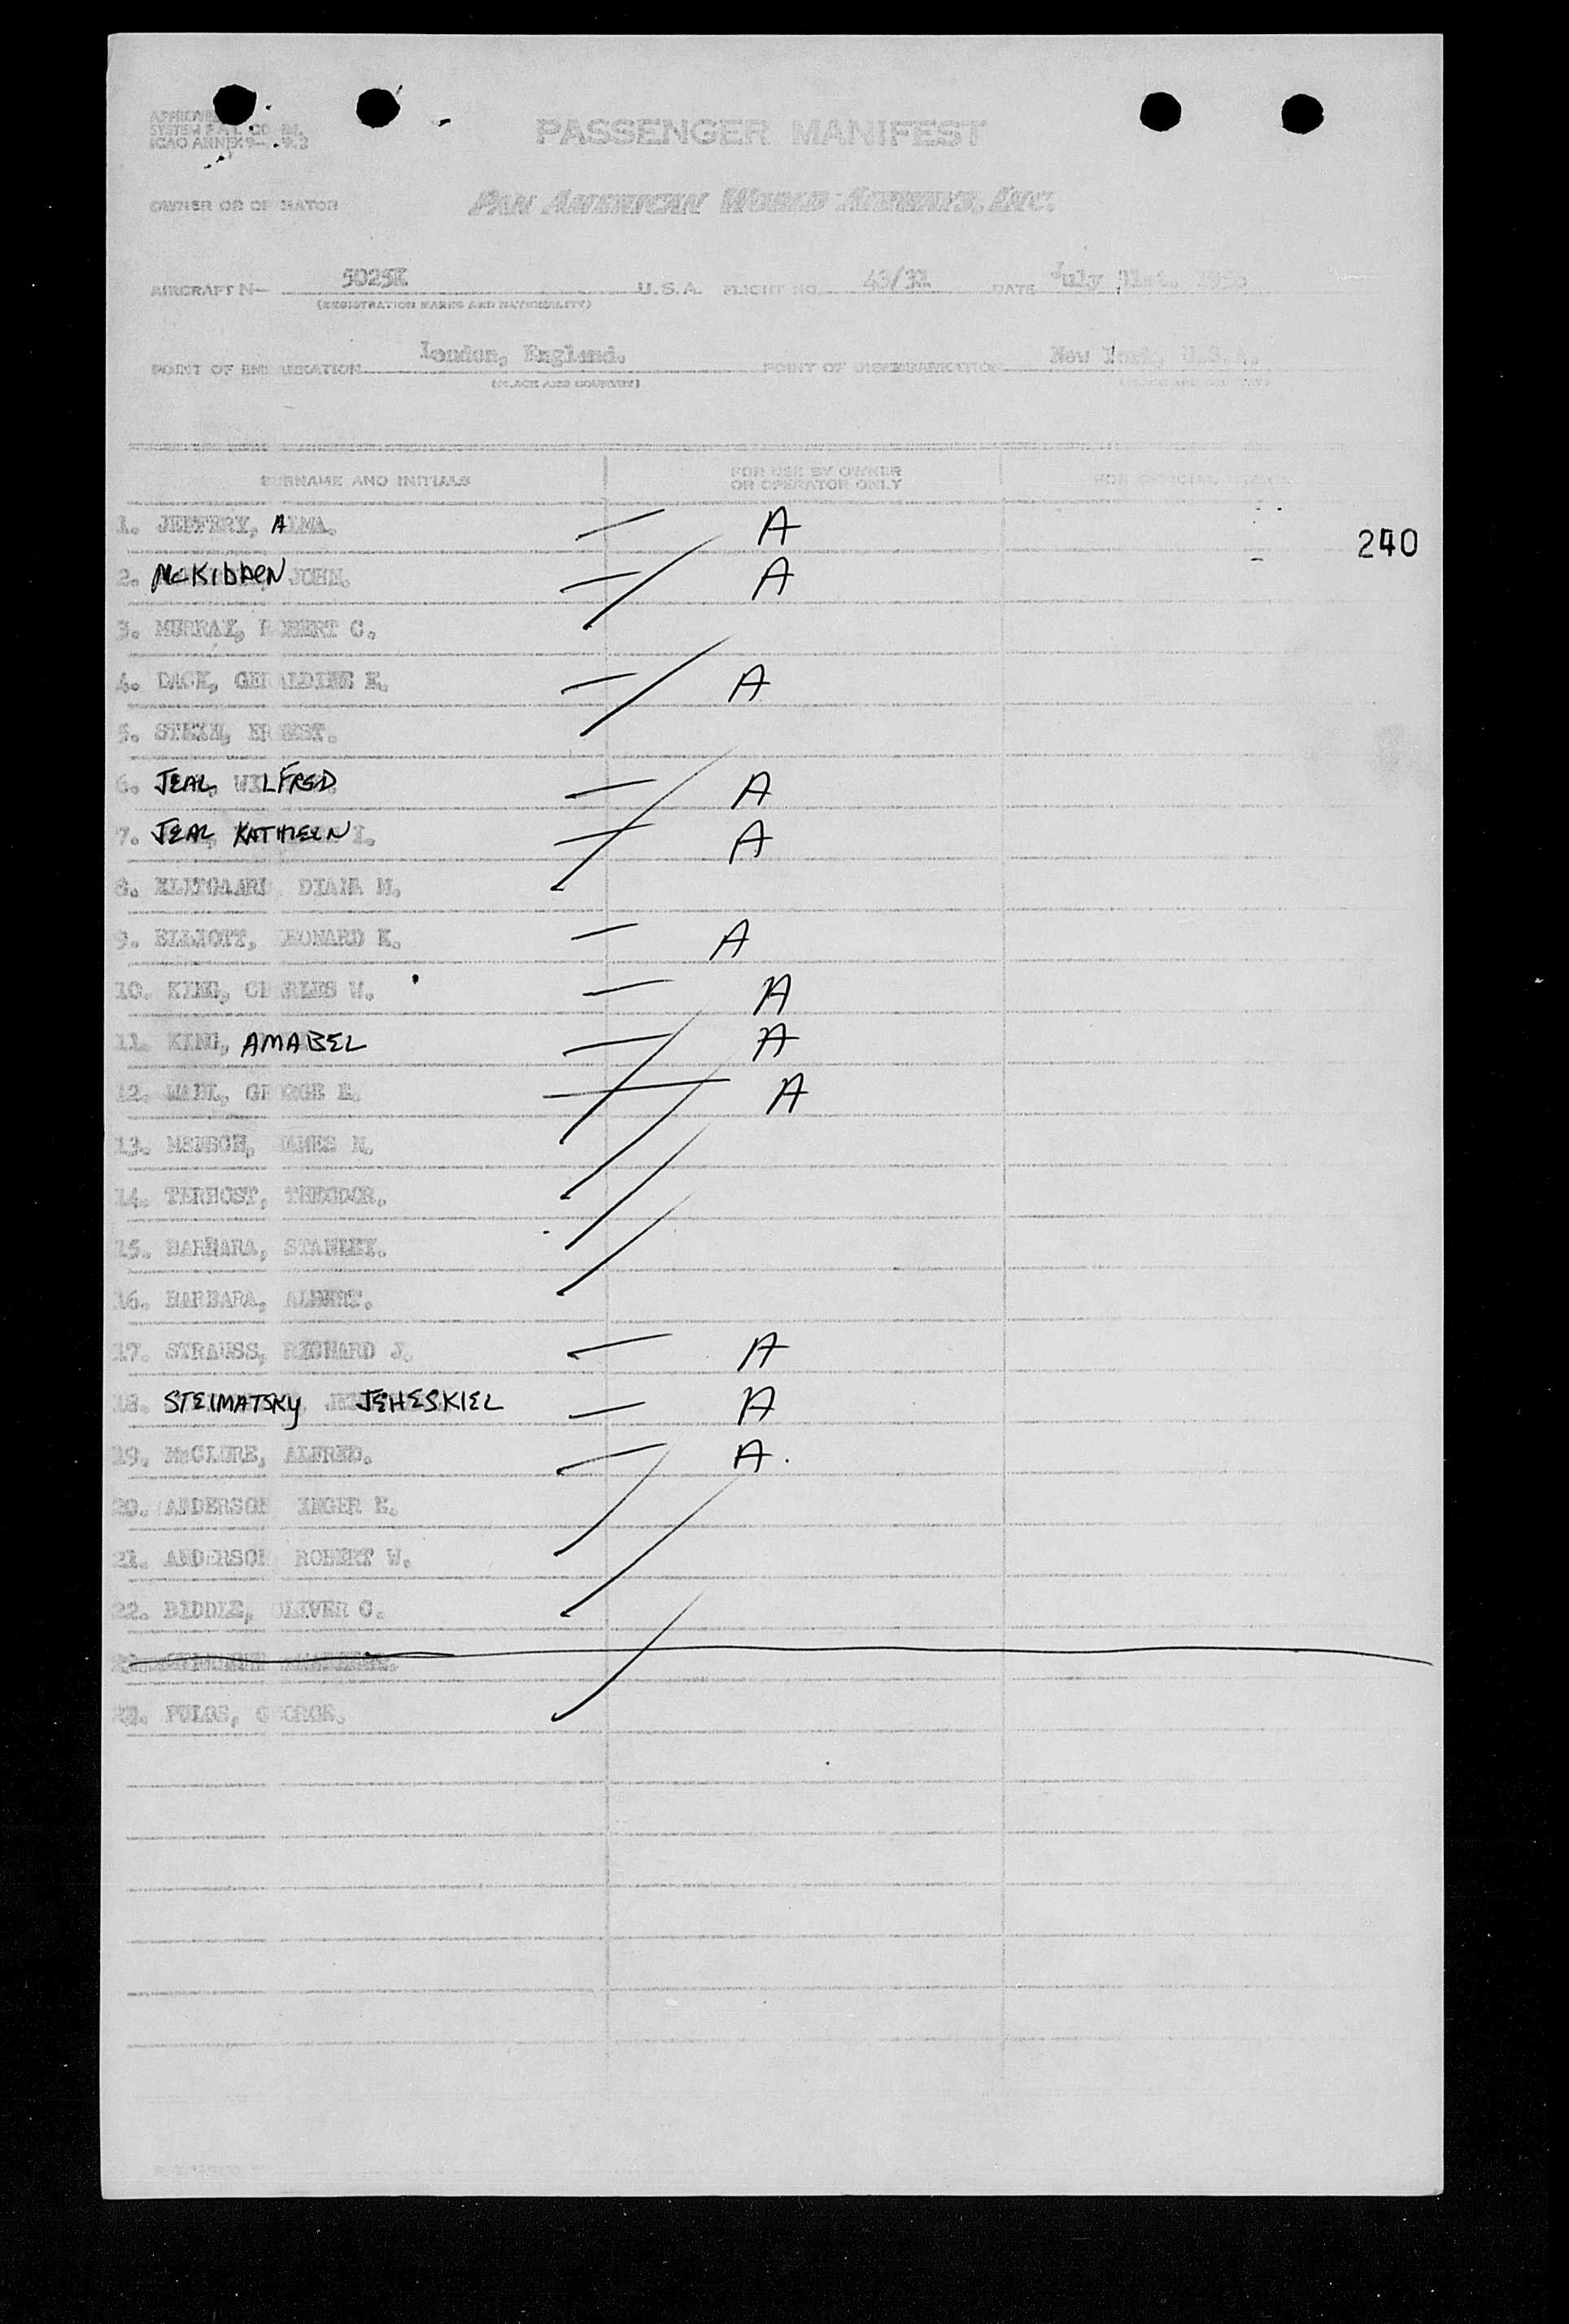 PASSENGER MANIFEST
OWNER OR OPERATOR PAN AMERICAN WORLD AIRWAYS, INC.
AIRCRAFT N— U.S.A. FLIGHT NO. DATE July 31st. 1950
(REGISTRATION MARKS AND NATIONALITY)
POINT OF EMBARKATION London, England. POINT OF DISEMBARKATION New York, U.S.A.
(PLACE AND COUNTRY) (PLACE AND COUNTRY)
SURNAME AND INITIALS FOR USE BY OWNER OR OPERATOR ONLY FOR OFFICIAL
1. JEFFERY, ALMA. A
240
2. McKIbbEN JOHN. A
3. MURRAY, ROBERT C.
4. DACK, GERALDINE E. A
5. ERNEST.
6. JEAL WILFRED A
7. JEAL KATHLEEN I. A
8. KLITGAARD DIANA M.
9. ELLIOTT, LEONARD K. A
10. KING, CHARLES W. A
11. KING, AMABEL A
12. GEORGE E. A
13. JAMES
14. TERHOST, THEODOR.
15. BARBARA, STANLEY.
16. BARBARA, ALBERT.
17. STRAUSS, RICHARD J. A
18. STEIMATSKY JEHESKIEL A
19. McCLURE, ALFRED. A.
20. ANDERSON INGER E.
21. ANDERSON ROBERT W.
22. BIDDLE, OLIVER C.
PULOS, GEORGE.